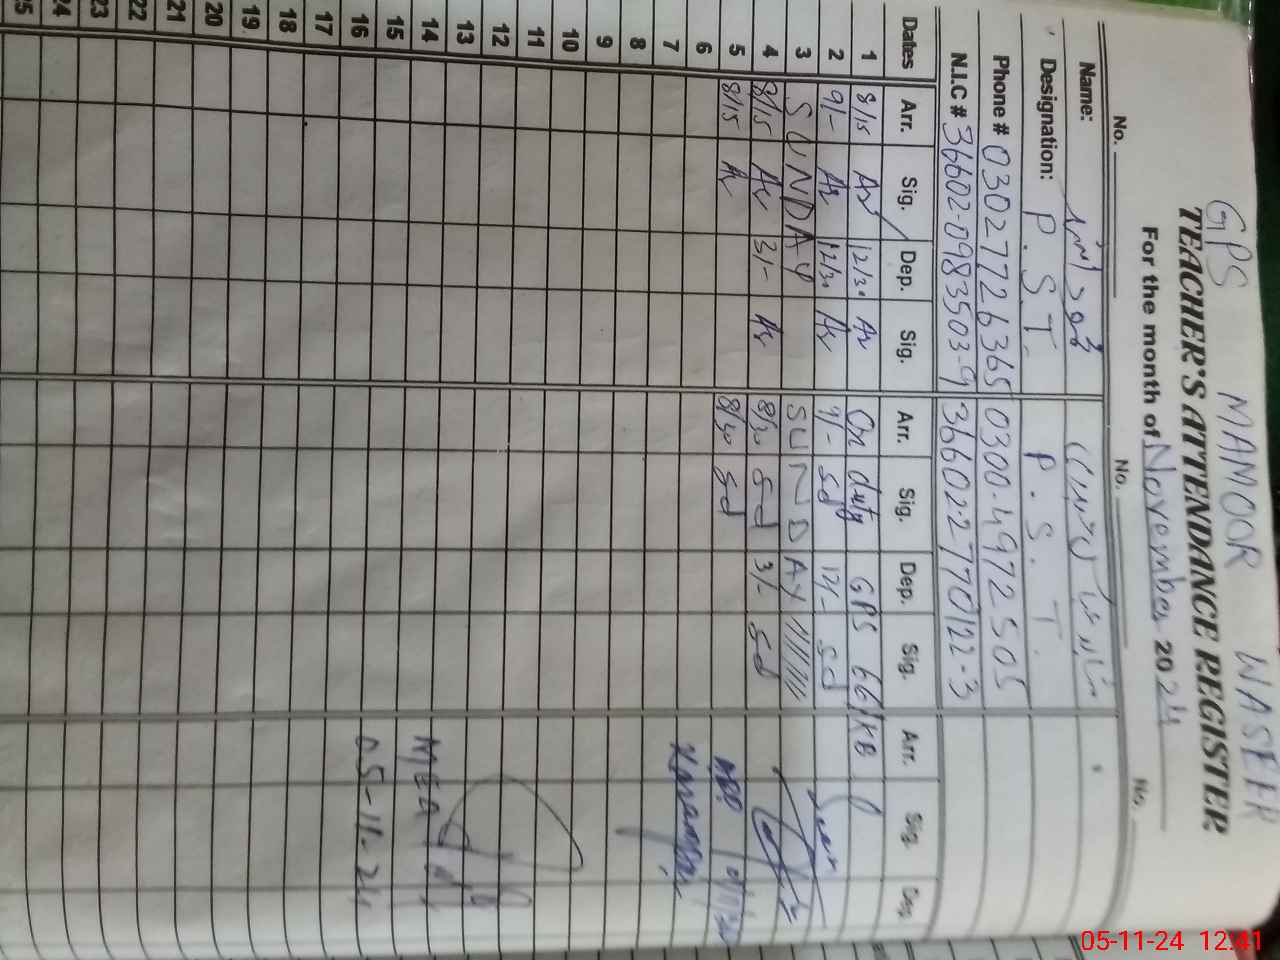 GPS MAMOOR WASEER
TEACHER'S ATTENDANCE REGISTER
For the month of November 2024
No. No. No.
Name:
Designation: P.S.T. P.S.T.
Phone # 03027726365 0300-4972505
N.I.C # 36602-0983503-9 36602-2770122-3
Dates Arr. Sig. Dep. Sig. Arr. Sig. Dep. Sig. Arr. Sig. Dep.
1 8/15 12/30 On duty GPS 66/KB
2 9/- 12/30 9/- Sd 12/- Sd
3 SUNDAY SUNDAY
4 8/15 3/- 8/30 Sd 3/- Sd
5 8/15 8/30 Sd
6
7
8
9
10
11
12
13
14 MEA
15
16 05-11-24
17
18
19
20
21
22
23
24
25
05-11-24 12:41